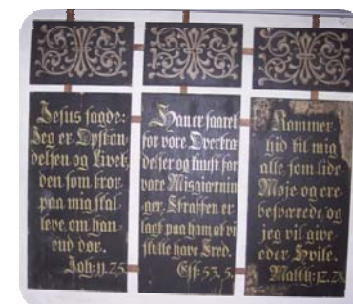 Jesus sagde:
Jeg er Opstan-
delsen og Livet,
den som tror
paa mig skal
leve, om han
end dør.
Joh: 11. 25.
Han er saaret
for vore Overtræ-
delser og knust for
vore Misgiernin-
ger. Straffen er
lagt paa ham at vi
skulle have Fred.
Esa: 53, 5.
Kommer
hid til mig
alle, som lide
Møje og ere
besværede, og
jeg vil give
eder Hvile.
Matth: